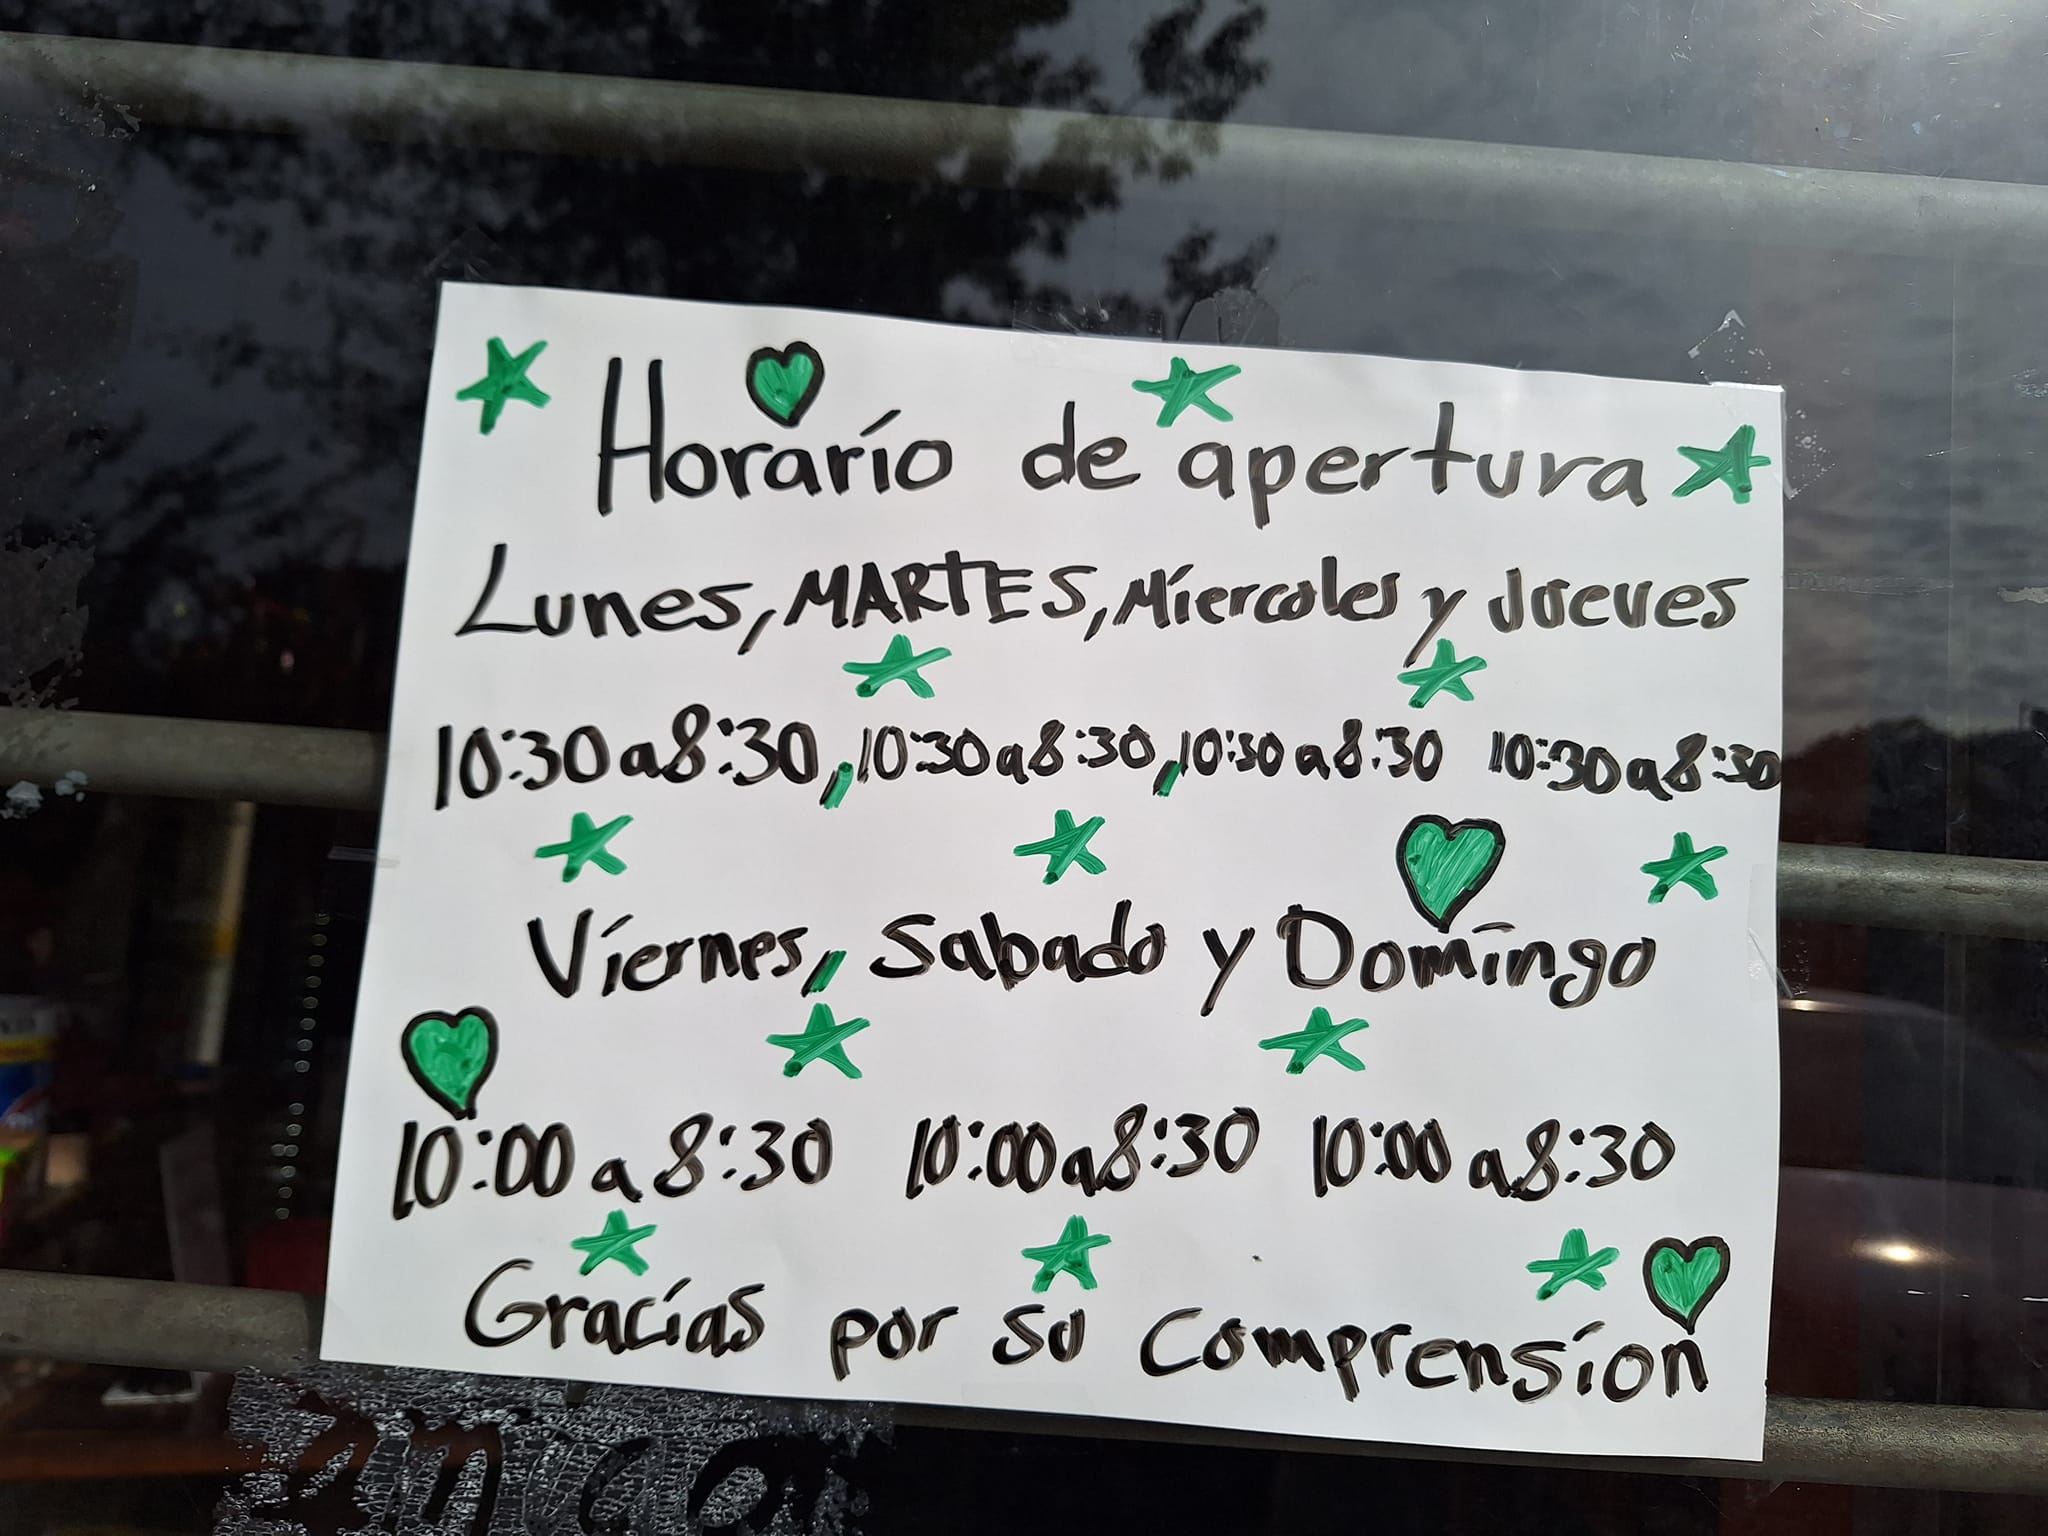 Horario de apertura
Lunes, MARTES, Miercoles y Jueves
10:30 a 8:30, 10:30 a 8:30, 10:30 a 8:30 10:30 a 8:30
Viernes, Sabado y Domingo
10:00 a 8:30 10:00 a 8:30 10:00 a 8:30
Gracias por su Comprension